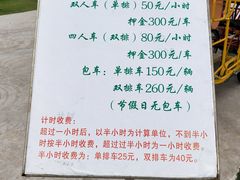 双人车(单排)50元/小时
押金300元/车
四人车(双排)80元/小时
押金300元/车
包车:单排车150元/辆
双排车260元/辆
(节假日无包车)
计时收费:
超过一小时后,以半小时为计算单位,不到半小
时按半小时收费,超过半小时为一小时收费。
半小时收费为:单排车25元,双排车为40元。